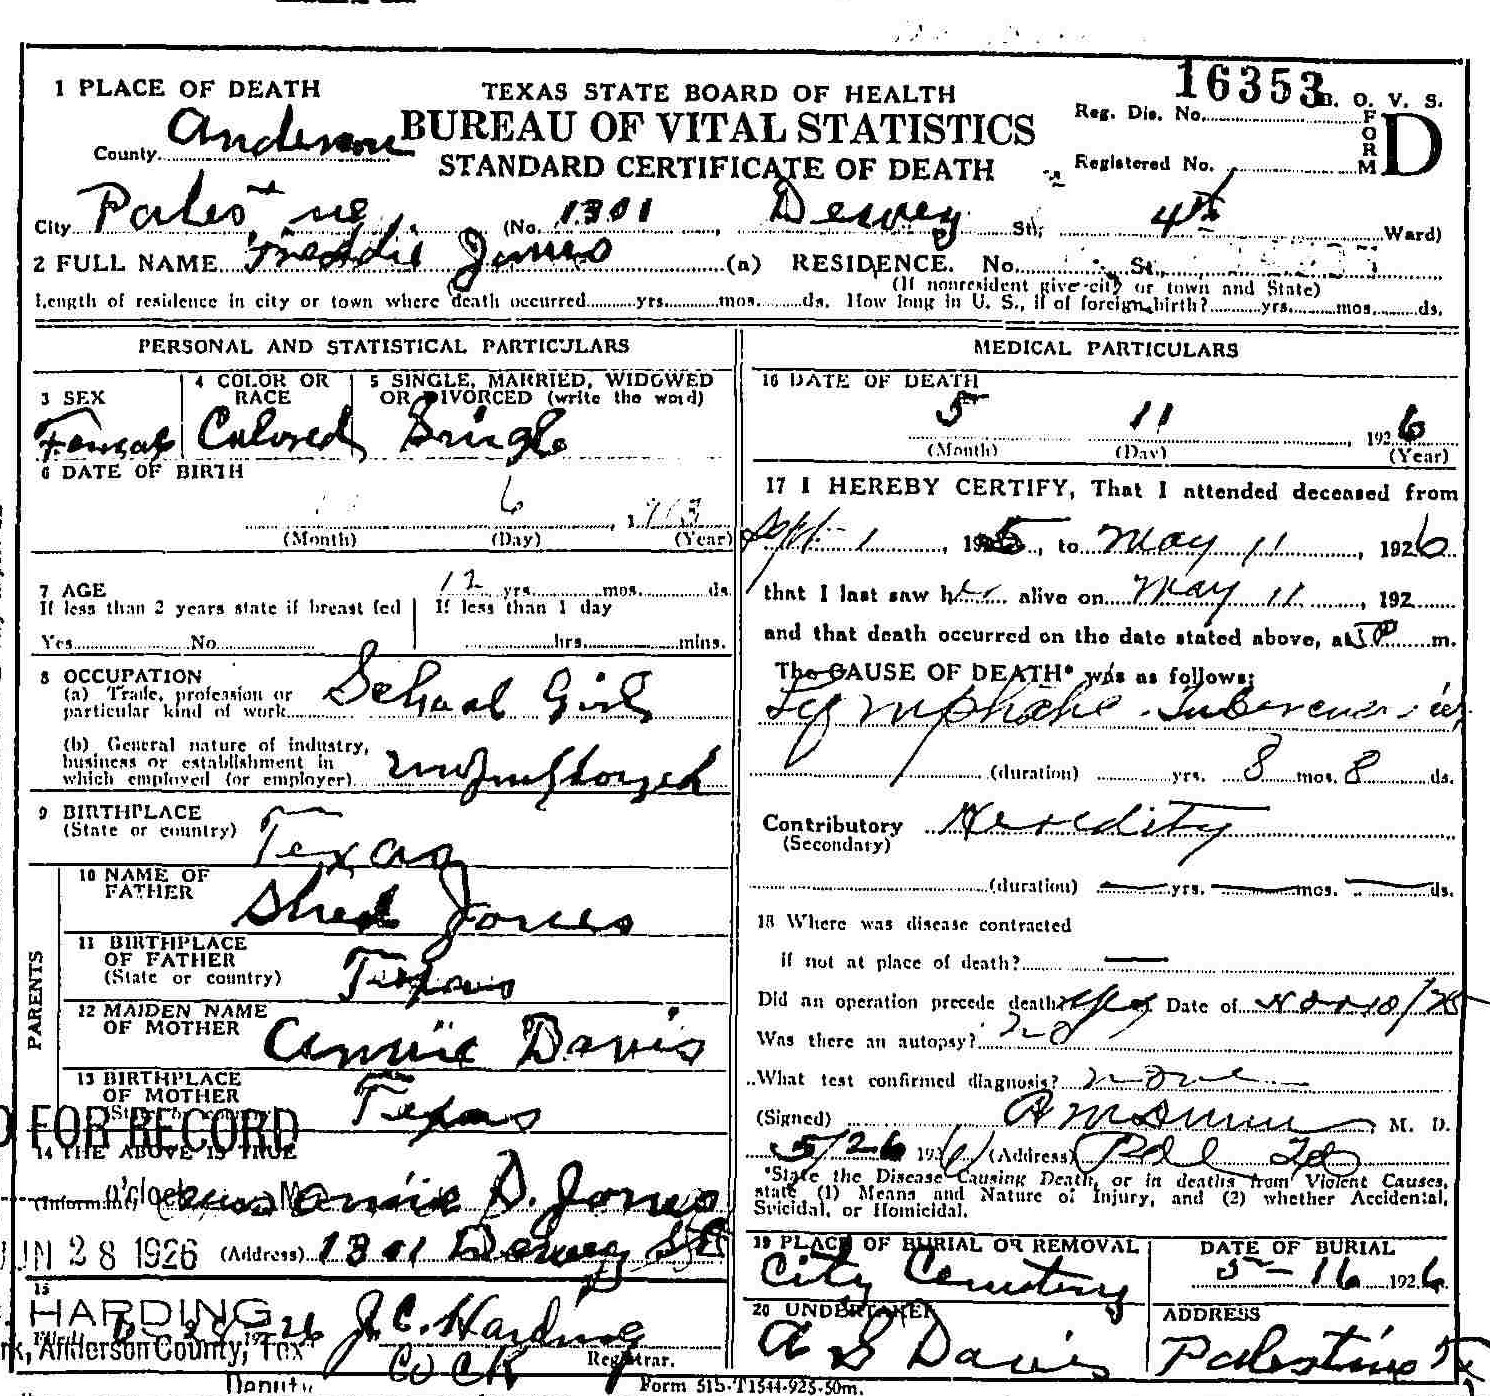 16353
1 PLACE OF DEATH
TEXAS STATE BOARD OF HEALTH
B. O. V. S.
Reg. Dis. No.
FORM D
County Anderson
BUREAU OF VITAL STATISTICS
STANDARD CERTIFICATE OF DEATH
Registered No.
City Palestine (No. 1301 Dewey St; 4th Ward)
2 FULL NAME Freddie Jones (a) RESIDENCE. No. St.
(If nonresident give city or town and State)
Length of residence in city or town where death occurred yrs. mos. ds. How long in U. S., if of foreign birth? yrs. mos. ds.
PERSONAL AND STATISTICAL PARTICULARS
3 SEX
Female
4 COLOR OR RACE
Colored
5 SINGLE, MARRIED, WIDOWED
OR DIVORCED (write the word)
Single
6 DATE OF BIRTH
6
(Month) (Day) (Year)
7 AGE 12 yrs. mos. ds.
If less than 2 years state if breast fed
If less than 1 day
Yes No hrs. mins.
8 OCCUPATION
(a) Trade, profession or
particular kind of work School Girl
(b) General nature of industry,
business or establishment in
which employed (or employer)
9 BIRTHPLACE
(State or country) Texas
PARENTS
10 NAME OF
FATHER Shed Jones
11 BIRTHPLACE
OF FATHER
(State or country) Texas
12 MAIDEN NAME
OF MOTHER Annie Davis
13 BIRTHPLACE
OF MOTHER Texas
FOR RECORD
14 THE ABOVE IS TRUE
o'clock M
(Informant) Annie D. Jones
28 1926
(Address) 1301 Dewey St
15
HARDING
J. C. Harding
Anderson County, Tex
Registrar.
Deputy
MEDICAL PARTICULARS
16 DATE OF DEATH
5 11 1926
(Month) (Day) (Year)
17 I HEREBY CERTIFY, That I attended deceased from
Sept 1 1925, to May 11, 1926
that I last saw her alive on May 11, 192
and that death occurred on the date stated above, at m.
The CAUSE OF DEATH* was as follows:
Lymphatic Tuberculosis
(duration) yrs. 8 mos. 8 ds.
Contributory Heredity
(Secondary)
(duration) yrs. mos. ds.
18 Where was disease contracted
if not at place of death?
Did an operation precede death yes Date of Nov 10/25
Was there an autopsy? no
What test confirmed diagnosis? none
(Signed) M. D.
5/26 1926 (Address) Pal Tex
*State the Disease Causing Death, or in deaths from Violent Causes,
state (1) Means and Nature of Injury, and (2) whether Accidental,
Suicidal, or Homicidal.
19 PLACE OF BURIAL OR REMOVAL
City Cemetery
DATE OF BURIAL
5-16 1926
20 UNDERTAKER
A S Davis
ADDRESS
Palestine
Form 515-T1544-925-50m.